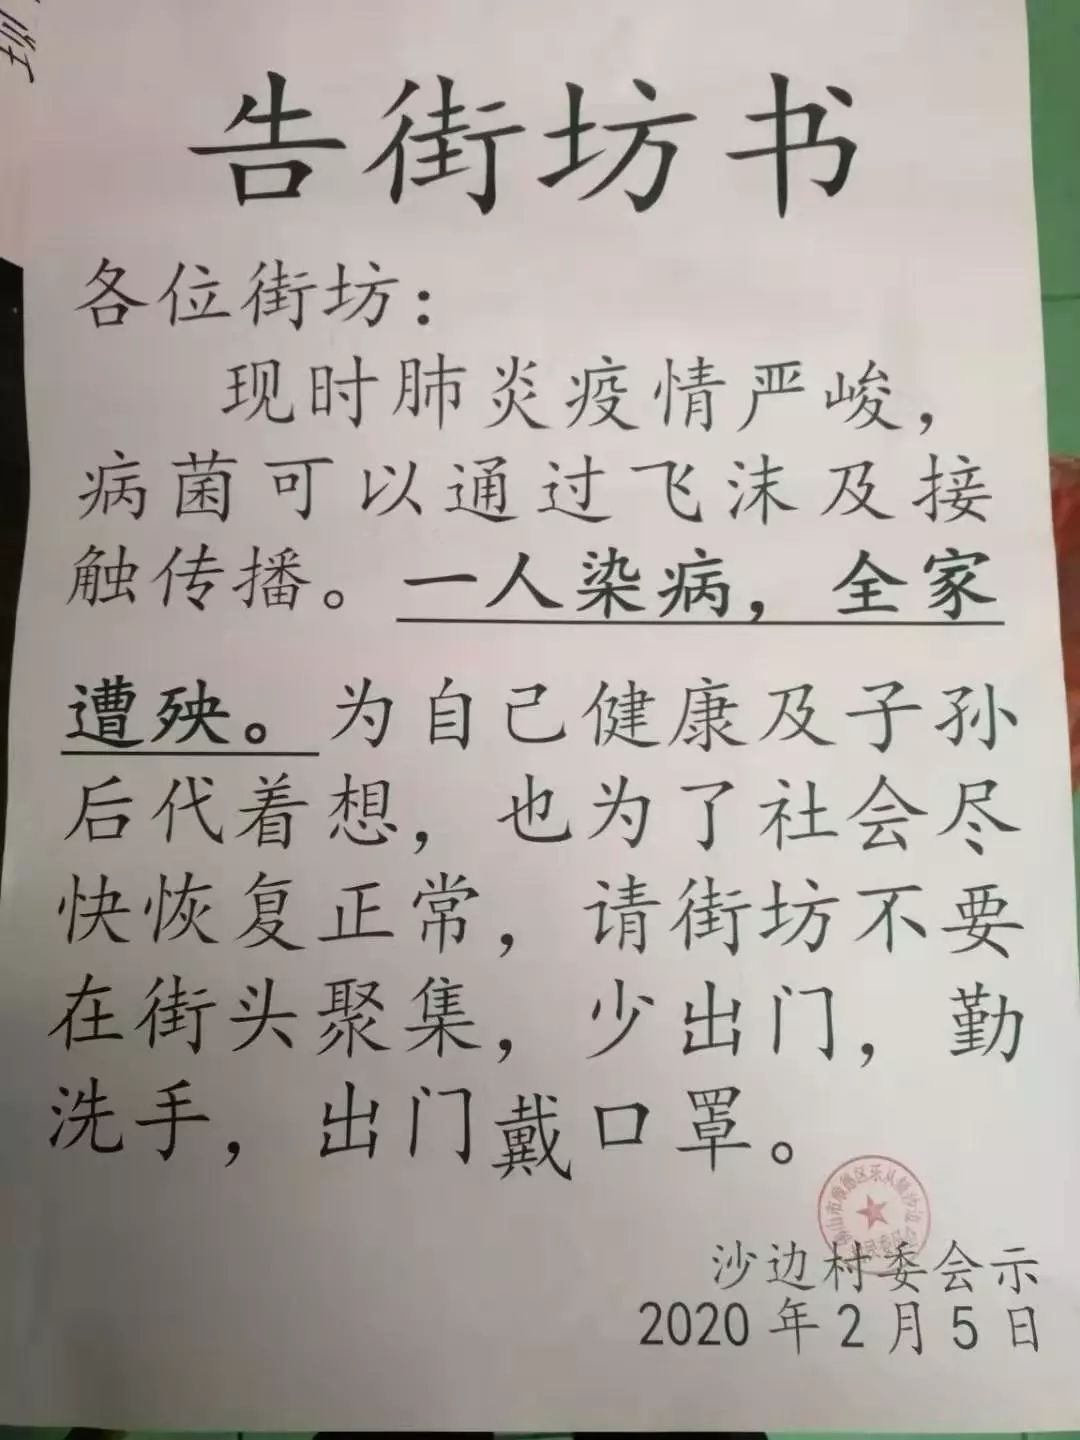 告街坊书
各位街坊：
现时肺炎疫情严峻，
病菌可以通过飞沫及接
触传播。一人染病，全家
遭殃。为自己健康及子孙
后代着想，也为了社会尽
快恢复正常，请街坊不要
在街头聚集，少出门，勤
洗手，出门戴口罩。
沙边村委会示
2020年2月5日